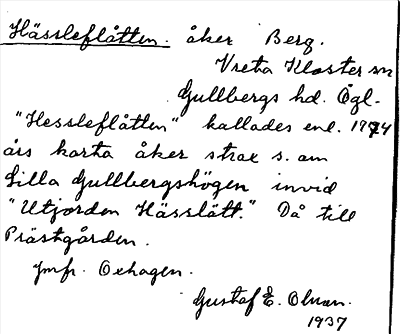 Hässleflätten. åker Berg.
Vreta Kloster sn
Gullbergs hd. Ögl.
"Hessleflätten" kallades enl. 1774
års karta åker strax s. om
Lilla Gullbergshögen invid
"Utjorden Hässlätt." Då till
Prästgården.
Jmfr. Oxhagen.
Gustaf E. Olsson.
1937